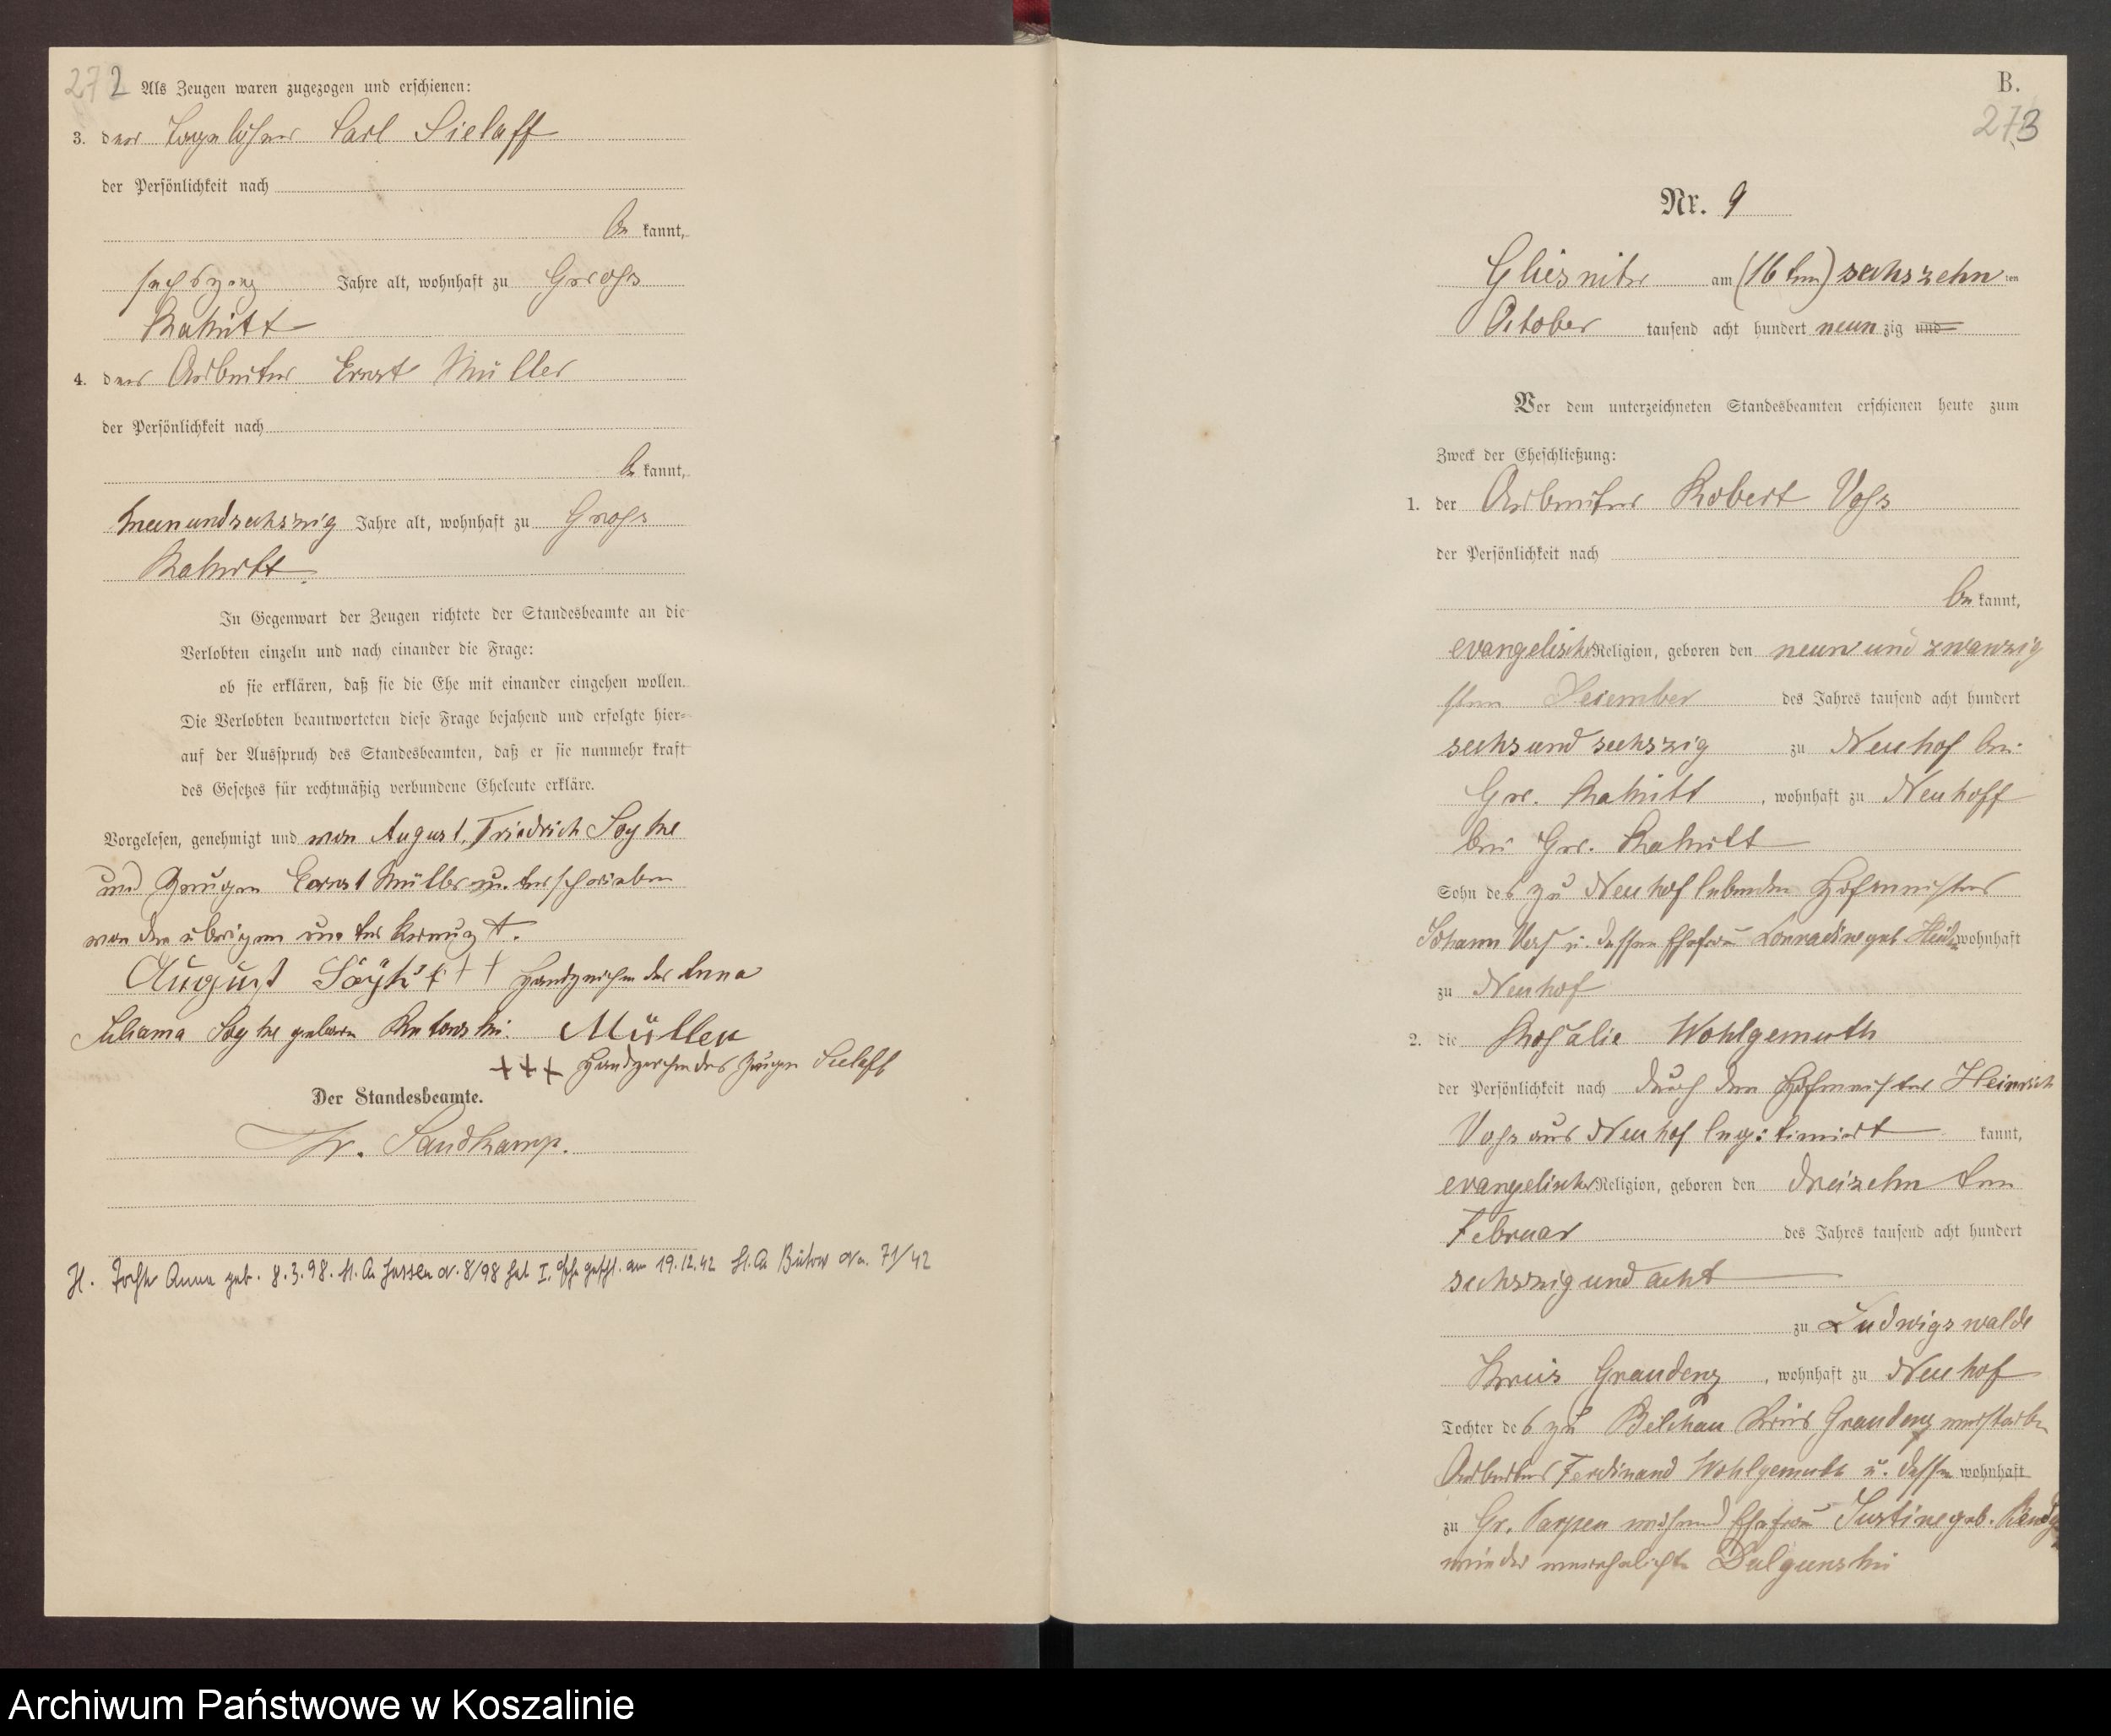 272 Als Zeugen waren zugezogen und erschienen:
3. der Tagelöhner Carl Sielaff
der Persönlichkeit nach
be kannt,
sechszig Jahre alt, wohnhaft zu Gross
Rakitt
4. der Arbeiter Ernst Müller
der Persönlichkeit nach
be kannt,
neunundsechszig Jahre alt, wohnhaft zu Gross
Rakitt
In Gegenwart der Zeugen richtete der Standesbeamte an die
Verlobten einzeln und nach einander die Frage:
ob sie erklären, daß sie die Ehe mit einander eingehen wollen.
Die Verlobten beantworteten diese Frage bejahend und erfolgte hier-
auf der Ausspruch des Standesbeamten, daß er sie nunmehr kraft
des Gesetzes für rechtmäßig verbundene Eheleute erkläre.
Vorgelesen, genehmigt und von August, Friedrich
und Zeugen Ernst Müller unterschrieben
von den übrigen unterkreuzt.
August +++ Handzeichen der Anna
geborene Müller
+++ Handzeichen des Zeugen Sielaff
Der Standesbeamte.
Fr. Sandkamp.
H. Tochter Anna geb. 8.3.98. St. A. Jassen N. 8/98 hat I. Ehe geschl. am 19.12.42 St. A. Bütow Nr. 71/42
B.
273
Nr. 9
Gliesnitz am (16ten) sechszehn ten
October tausend acht hundert neun zig und
Vor dem unterzeichneten Standesbeamten erschienen heute zum
Zweck der Eheschließung:
1. der Arbeiter Robert Voss
der Persönlichkeit nach
be kannt,
evangelischer Religion, geboren den neun und zwanzig
sten Dezember des Jahres tausend acht hundert
sechs und sechszig zu Neuhof bei
Gr. Rakitt, wohnhaft zu Neuhoff
bei Gr. Rakitt
Sohn des zu Neuhof lebenden Hofmeister
Johann Voss u. dessen Ehefrau geb. wohnhaft
zu Neuhof
2. die Rosalie Wohlgemuth
der Persönlichkeit nach durch den Hofmeister Heinrich
Voss aus Neuhof legitimiert kannt,
evangelischer Religion, geboren den dreizehn ten
Februar des Jahres tausend acht hundert
sechszig und acht
zu Ludwigswalde
Kreis Graudenz, wohnhaft zu Neuhof
Tochter des zu Belchau Kreis Graudenz verstorben
Arbeiter Ferdinand Wohlgemuth u. dessen wohnhaft
zu Gr. wohnend Ehefrau Justine geb.
wieder verehelichte
Archiwum Państwowe w Koszalinie